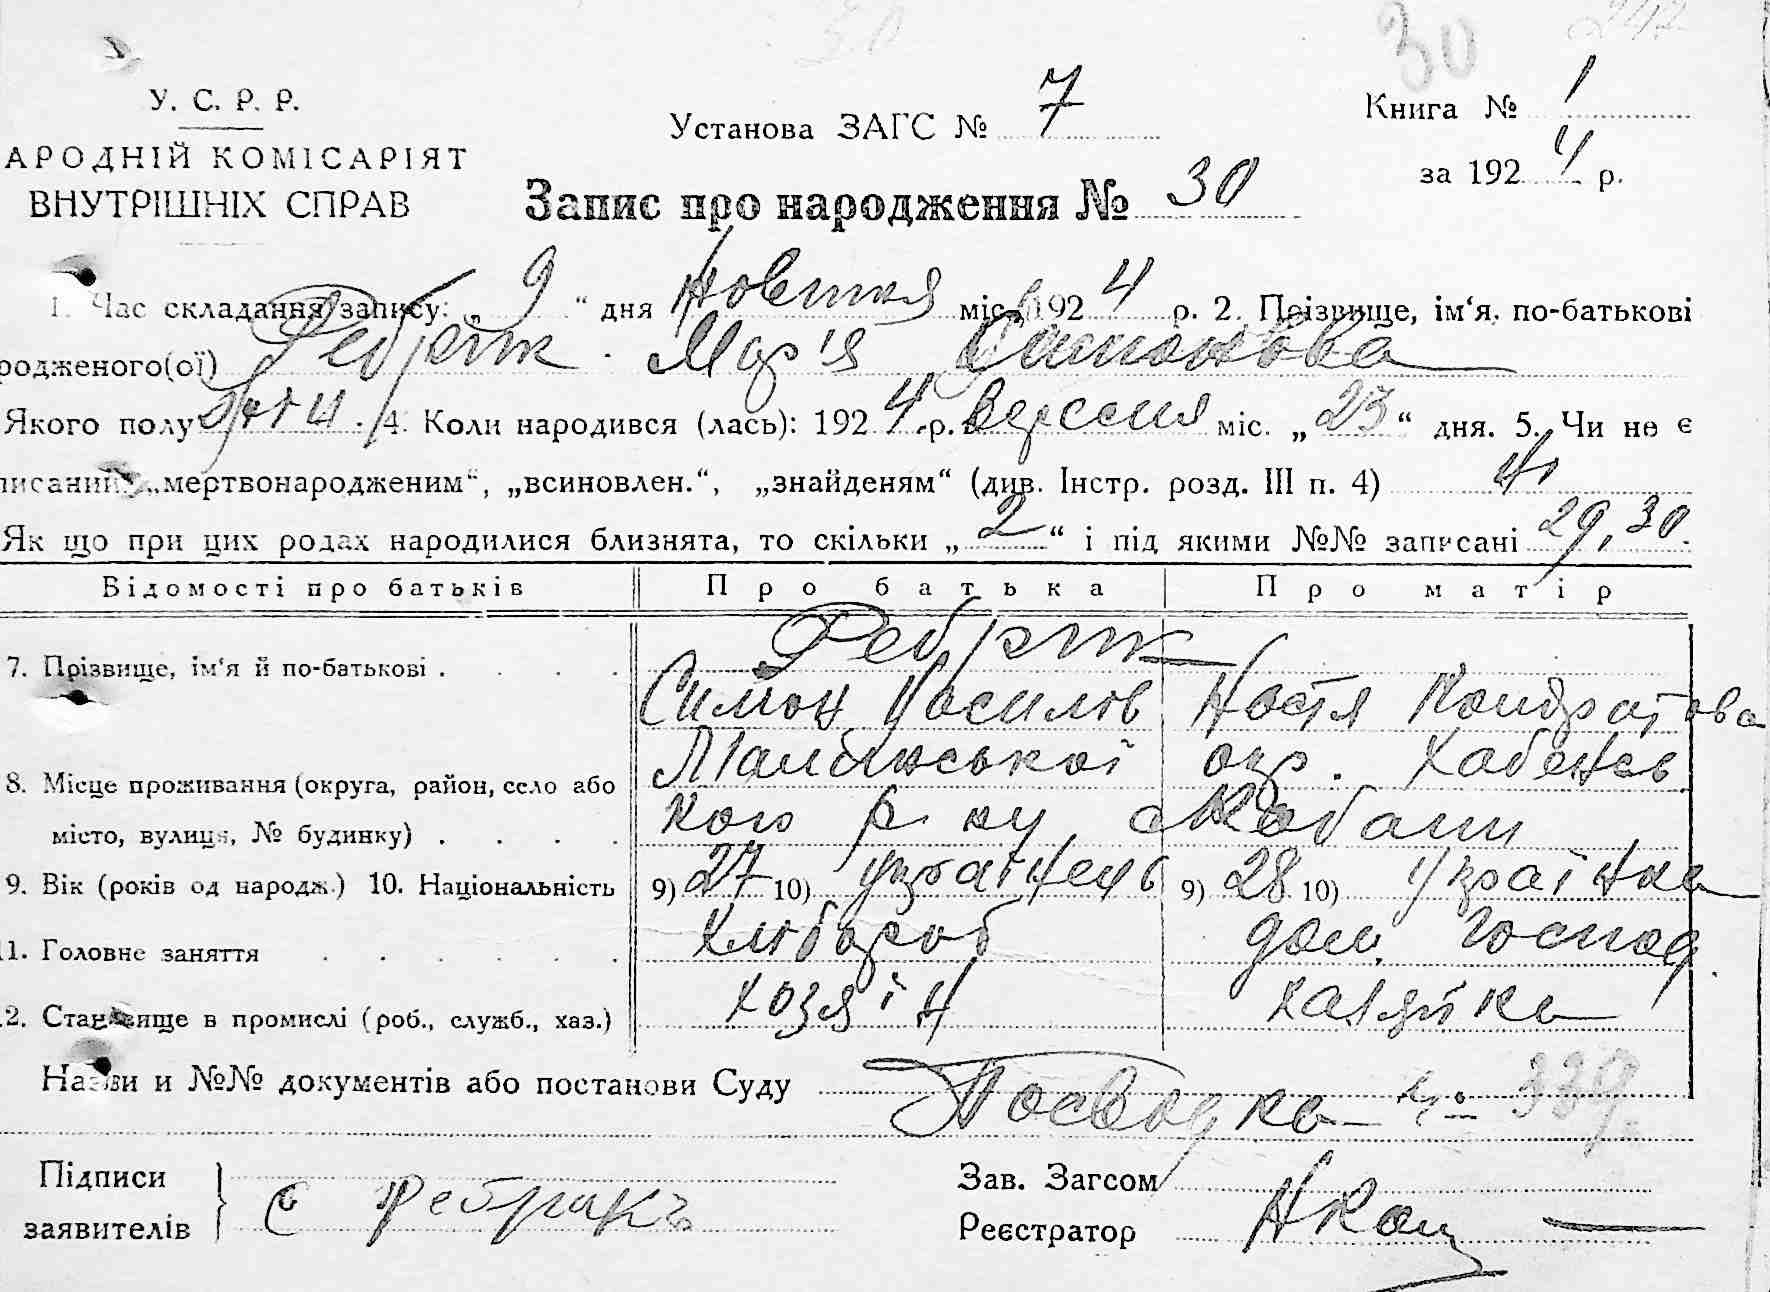 30 242
У. С. Р. Р.
АРОДНІЙ КОМІСАРІЯТ
ВНУТРІШНІХ СПРАВ
Установа ЗАГС № 7
Книга № 1
за 1924 р.
Запис про народження № 30
1. Час складання запису: „ 9 “ дня Новтня міс. 1924 р. 2. Прізвище, ім‘я, по-батькові
родженого(ої) Ребрик Мар'я Симонова
Якого полу 4. Коли народився (лась): 1924 р. Вересня міс. „23“ дня. 5. Чи не є
писаний „мертвонародженим“, „всиновлен.“, „знайденям“ (див. Інстр. розд. III п. 4) Ні
Як що при цих родах народилися близнята, то скільки „ 2 “ і під якими №№ записані 29, 30.
Відомості про батьків Про батька Про матір
7. Прізвище, ім‘я й по-батькові . . . . Ребрик
Симон Василів Настя Кондратова
8. Місце проживання (округа, район, село або Малинської окр. Хабенсь
місто, вулиця, № будинку) . . . . кого р-ну с.
9. Вік (років од народж.) 10. Національність 9) 27 10) українець 9) 28 10) Українка
11. Головне заняття . . . . . . хлібороб дом. господ.
12. Становище в промислі (роб., служб., хаз.) хозяїн хазяйка
Назви и №№ документів або постанови Суду Посвідка № 339
Підписи
заявителів
С Ребрикъ
Зав. Загсом
Реєстратор